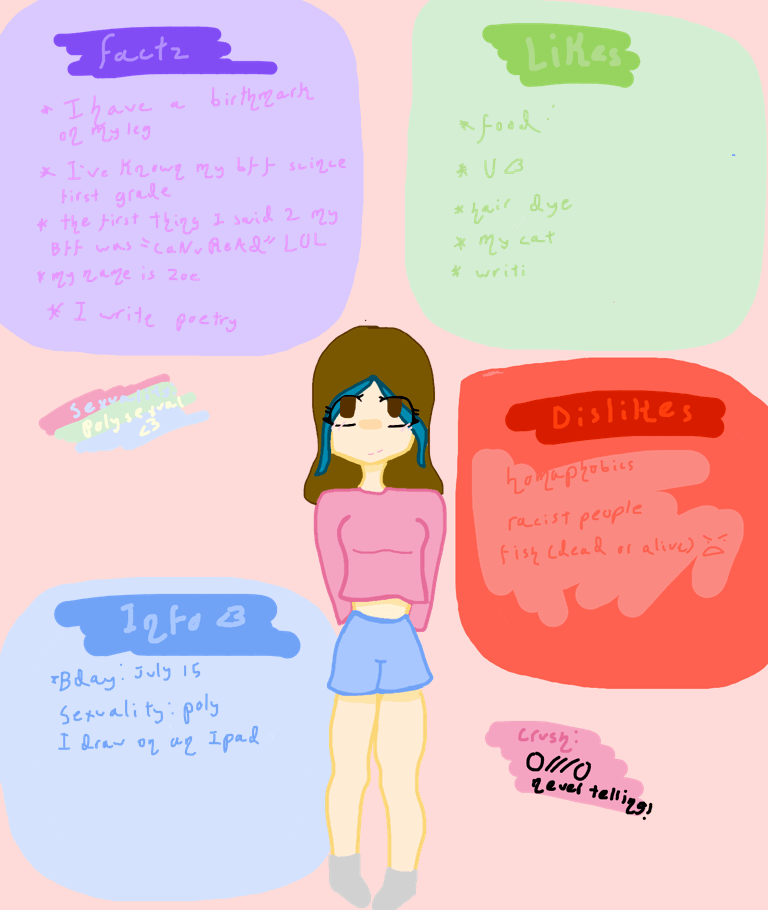 Factz
* I have a birthmark
on my leg
* I've known my bff scince
first grade
* the first thing I said 2 my
Bff was "caN u ReAd" LOL
* my name is zoe
* I write poetry
Likes
* food
* U <3
* hair dye
* my cat
* writi
sexuality
polysexual
<3
Dislikes
homaphobics
racist people
fish (dead or alive)
Info <3
* Bday: July 15
Sexuality: poly
I draw on an Ipad
crush:
O////O
never telling!